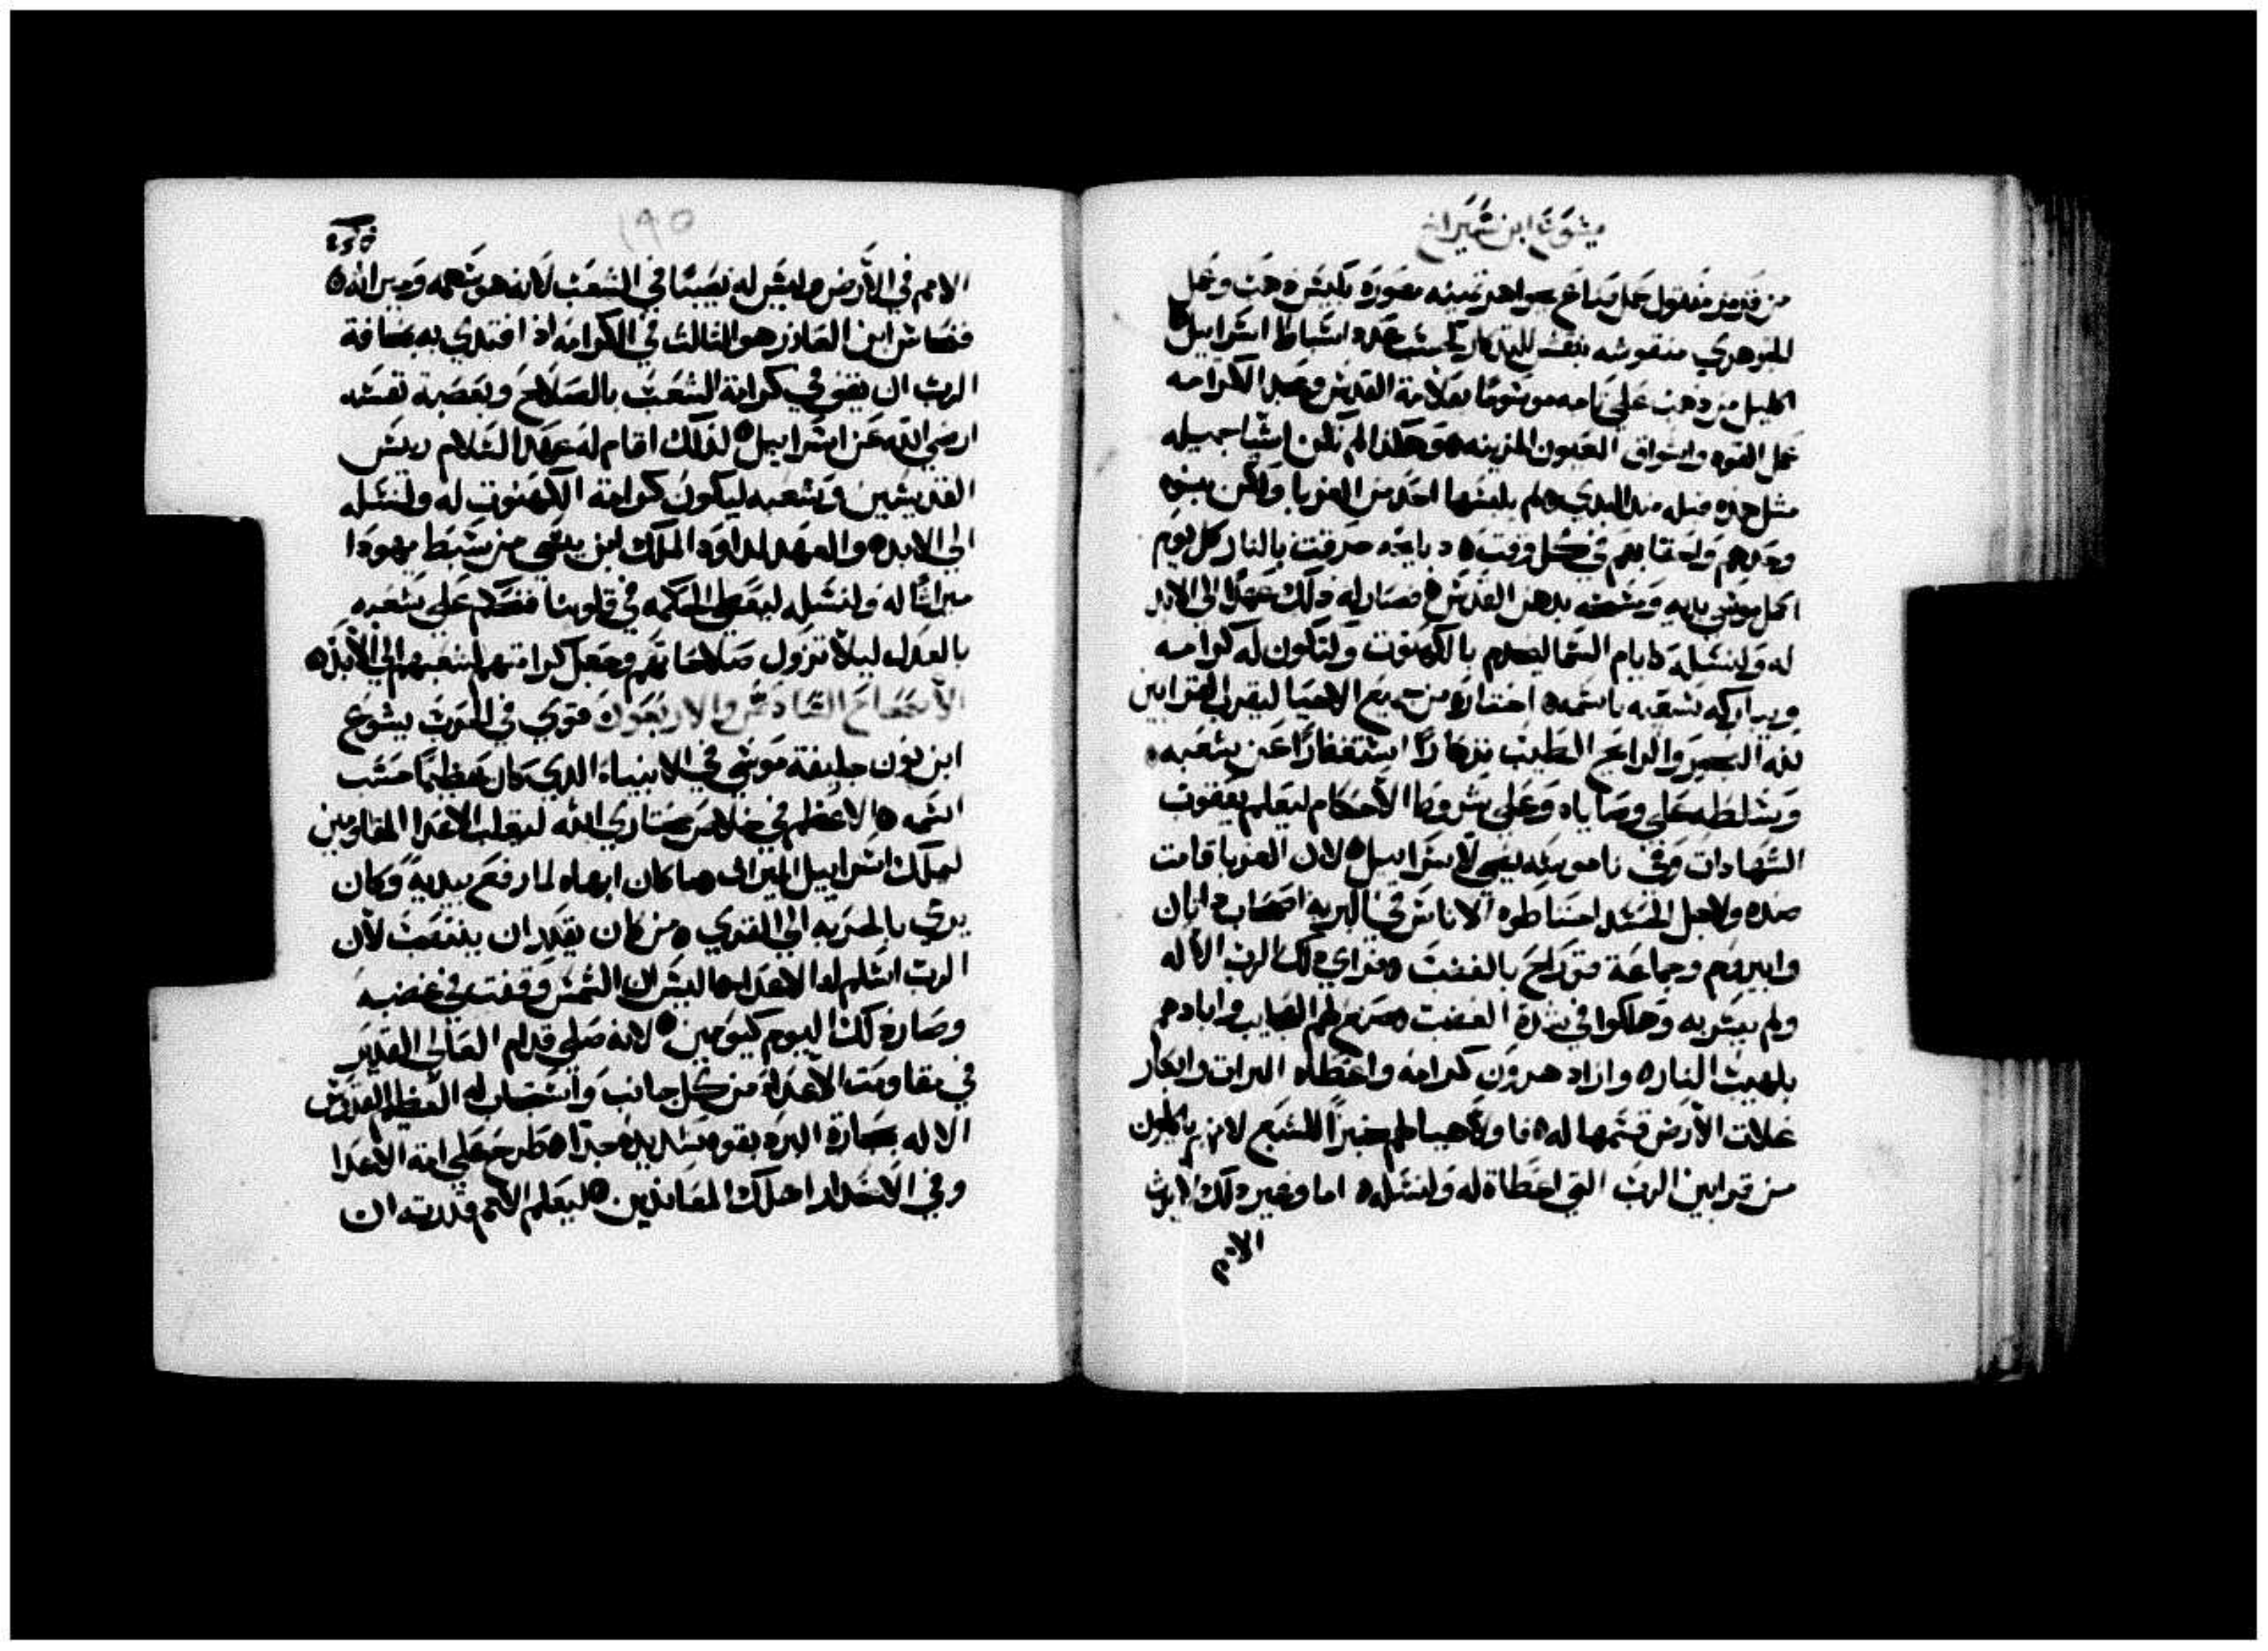 يشوع ابن شيراخ
من قرمز مفتول عمل صناع بجواهر ثمينه مصوره بلبس ذهب وعمل
الجوهري منقوشه بنقش للتذكار كحسب عدد اسباط اسراييل
اكليل من ذهب على تاجه موسومًا بعلامة القدس ومجد الكرامه
عمل القوه واشواق العيون المزينه هو هكذا لم تكن اشيا جميله
مثل هذه قبله منذ البدي ولم يلبسها احد من الغربا ولكن بنيه
وحدهم واحفادهم في كل وقت ذبايحه حرقت بالنار كل يوم
اكمل موسى يديه ومسحه بدهن القدس فصار له ذلك عهدًا الى الابد
له ولنسله كايام السما ليخدم بالكهنوت ولتكون له كرامه
ويبارك شعبه باسمه اختاره من جميع الاحيا ليقرب القرابين
لله البخور والرايح الطيب تذكارًا استغفارًا عن شعبه
وسلطه على وصاياه وعلى شروط الاحكام ليعلم يعقوب
الشهادات وفي ناموسه يضي لاسراييل لان الغربا قامت
ضده ولاجل الحسد احتاطوه الاناس في البريه اصحاب داثان
وابيروم وجماعة قورح بالغضب فراي ذلك الرب الاله
ولم يسر به وهلكوا في شدة الغضب صنع لهم العجايب وابادهم
بلهيب النار وازاد هرون كرامه واعطاه الميراث وابكار
غلات الارض قسمها له فاولاً هيا لهم خبزًا للشبع لانهم ياكلون
من قرابين الرب التي اعطاه له ولنسله اما وغير ذلك لايرث
الامم
١٩٥
الامم في الارض وليس له نصيبًا في الشعب لانه هو سهمه وميراثه
فنحاس ابن العازر هو الثالث في الكرامه اذ اقتدي به بمخافة
الرب ان يقف في كرامة الشعب بالصلاح وبغصبة نفسه
ارضي الله عن اسراييل لذلك اقام له عهد السلام ريس
القديسين وشعبه ليكون كرامة الكهنوت له ولنسله
الى الابد والعهد لداود الملك ابن يسى من سبط يهودا
ميراثًا له ولنسله ليعطي الحكمه في قلوبنا فنحكم على شعبه
بالعدل ليلا تزول صلاحاتهم وجعل كرامتهم لشعبهم الى الابد
الاصحاح السادس والاربعون قوي في الحرب يشوع
ابن نون خليفة موسى في الانبياء الذي كان عظيمًا حسب
اسمه الاعظم في خلاص مختاري الله ليغلب الاعدا المقاومين
لملك اسراييل الميراث ما كان ابهاه لما رفع يديه وكان
يرمي بالحربه الى القري من كان يقدر ان ينتصب لان
الرب اسلم له الاعدا اليس ان الشمس وقفت في غضبه
وصار ذلك اليوم كيومين لانه صلى قدام العالى القدير
في مقاومت الاعداء من كل جانب واستجاب له العظيم القدوس
الاله بحجارة البرد بقوه شديده جدًا طرح على امة الاعدا
وفي الانحدار اهلك المعاندين ليعلم الامم قدرته ان